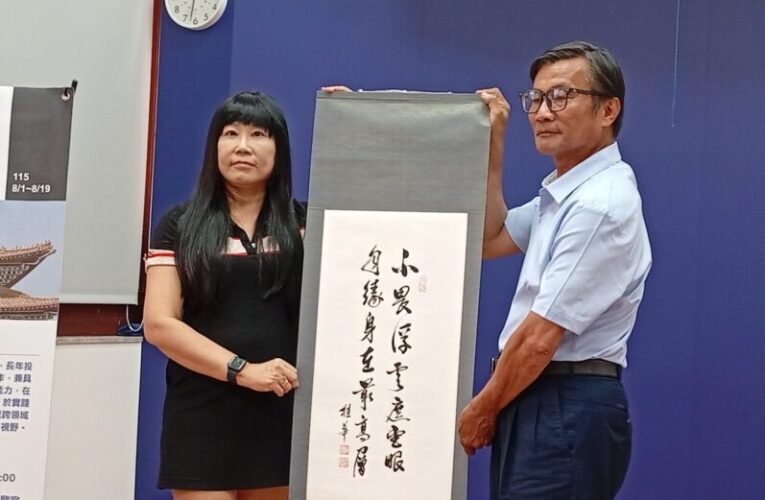 115
8/1~8/19
，長年投
作，兼具
能力，在
於實踐
跨領域
視野。
:00
不畏浮雲遮望眼
自緣身在最高層
桂華